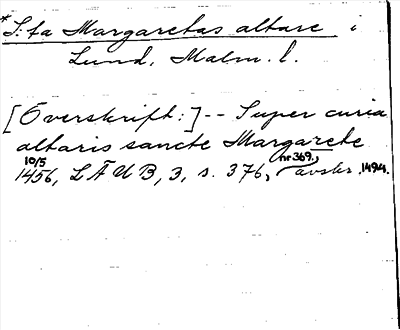 *S:ta Margaretas altare i
Lund, Malm. l.
[Överskrift:] -- Super curia
altaris sancte Margarete
10/5 nr 369.,
1456, LÄUB, 3, s. 376, avskr. 1494.